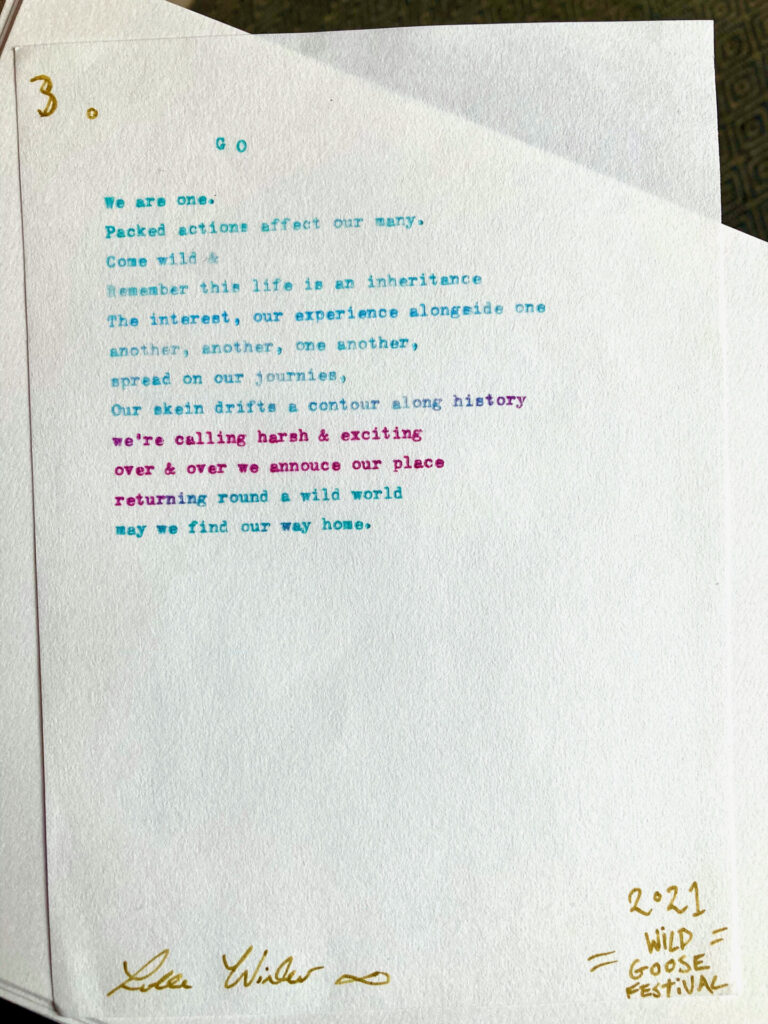 3.
GO
We are one.
Packed actions affect our many.
Come wild &
Remember this life is an inheritance
The interest, our experience alongside one
another, another, one another,
spread on our journies,
Our skein drifts a contour along history
we're calling harsh & exciting
over & over we annouce our place
returning round a wild world
may we find our way home.
2021
= WILD =
GOOSE
FESTIVAL